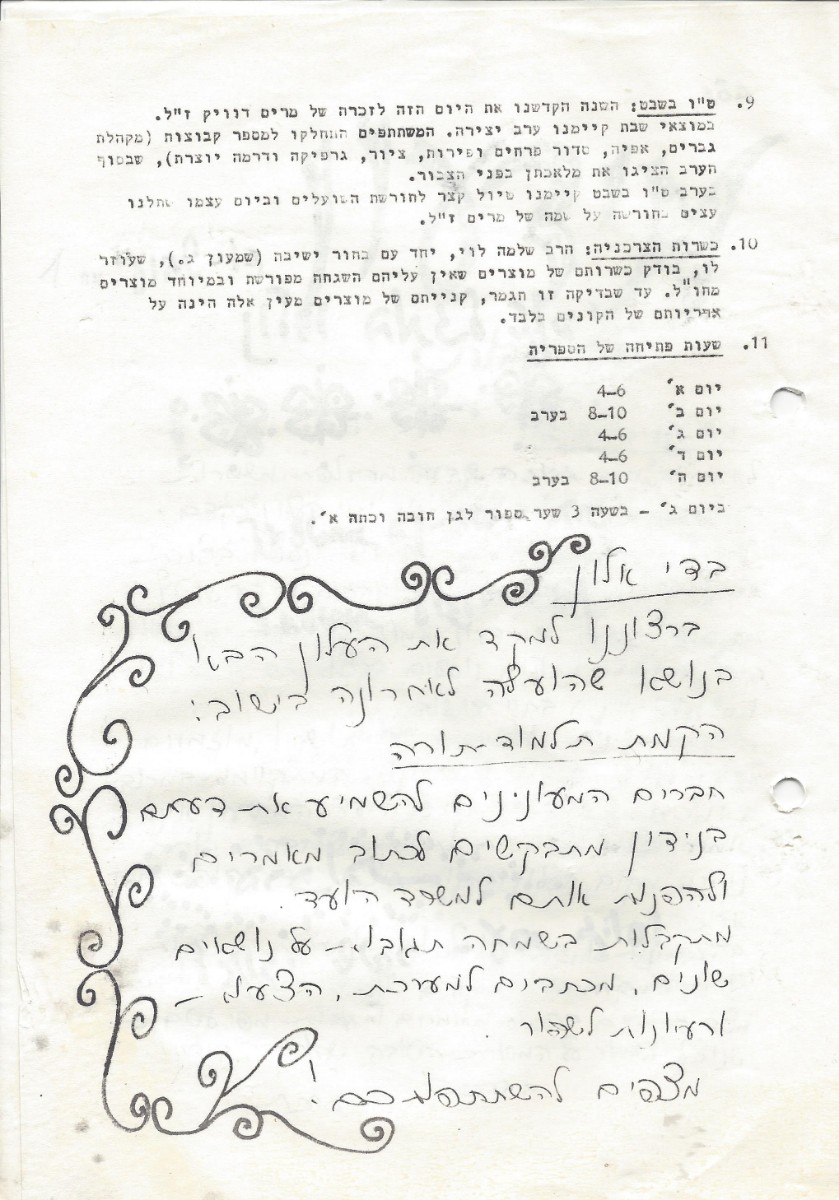 9. ט"ו בשבט: השנה הקדשנו את היום הזה לזכרה של מרים דוויק ז"ל.
במוצאי שבת קיימנו ערב יצירה. המשתתפים התחלקו למספר קבוצות (מקהלת
גברים, אפיה, סדור פרחים ופירות, ציור, גרפיקה ודרמה יוצרת), שבסוף
הערב הציגו את מלאכתן בפני הצבור.
בערב ט"ו בשבט קיימנו טיול קצר לחורשת השועלים וביום עצמו שתלנו
עצים בחורשה על שמה של מרים ז"ל.
10. כשרות הצרכניה: הרב שלמה לוי, יחד עם בחור ישיבה (שמעון ג.), שעוזר
לו, בודק כשרותם של מוצרים שאין עליהם השגחה מפורשת ובמיוחד מוצרים
מחו"ל. עד שבדיקה זו תגמר, קנייתם של מוצרים מעין אלה הינה על
אחריותם של הקונים בלבד.
11. שעות פתיחה של הספריה
יום א' 4-6
יום ב' 8-10 בערב
יום ג' 4-6
יום ד' 4-6
יום ה' 8-10 בערב
ביום ג' - בשעה 3 שעת ספור לגן חובה וכתה א'.
בדי אלון
ברצוננו למקד את העלון הבא
בנושא שהועלה לאחרונה בישוב:
הקמת תלמוד-תורה
חברים המעונינים להשמיע את דעתם
בנידון מתבקשים לכתוב מאמרים
ולהפנות אותם למשרד הועד.
מתקבלות בשמחה תגובות על נושאים
שונים, מכתבים למערכת, הצעות
ורעיונות לשפור.
מצפים להשתתפותכם!